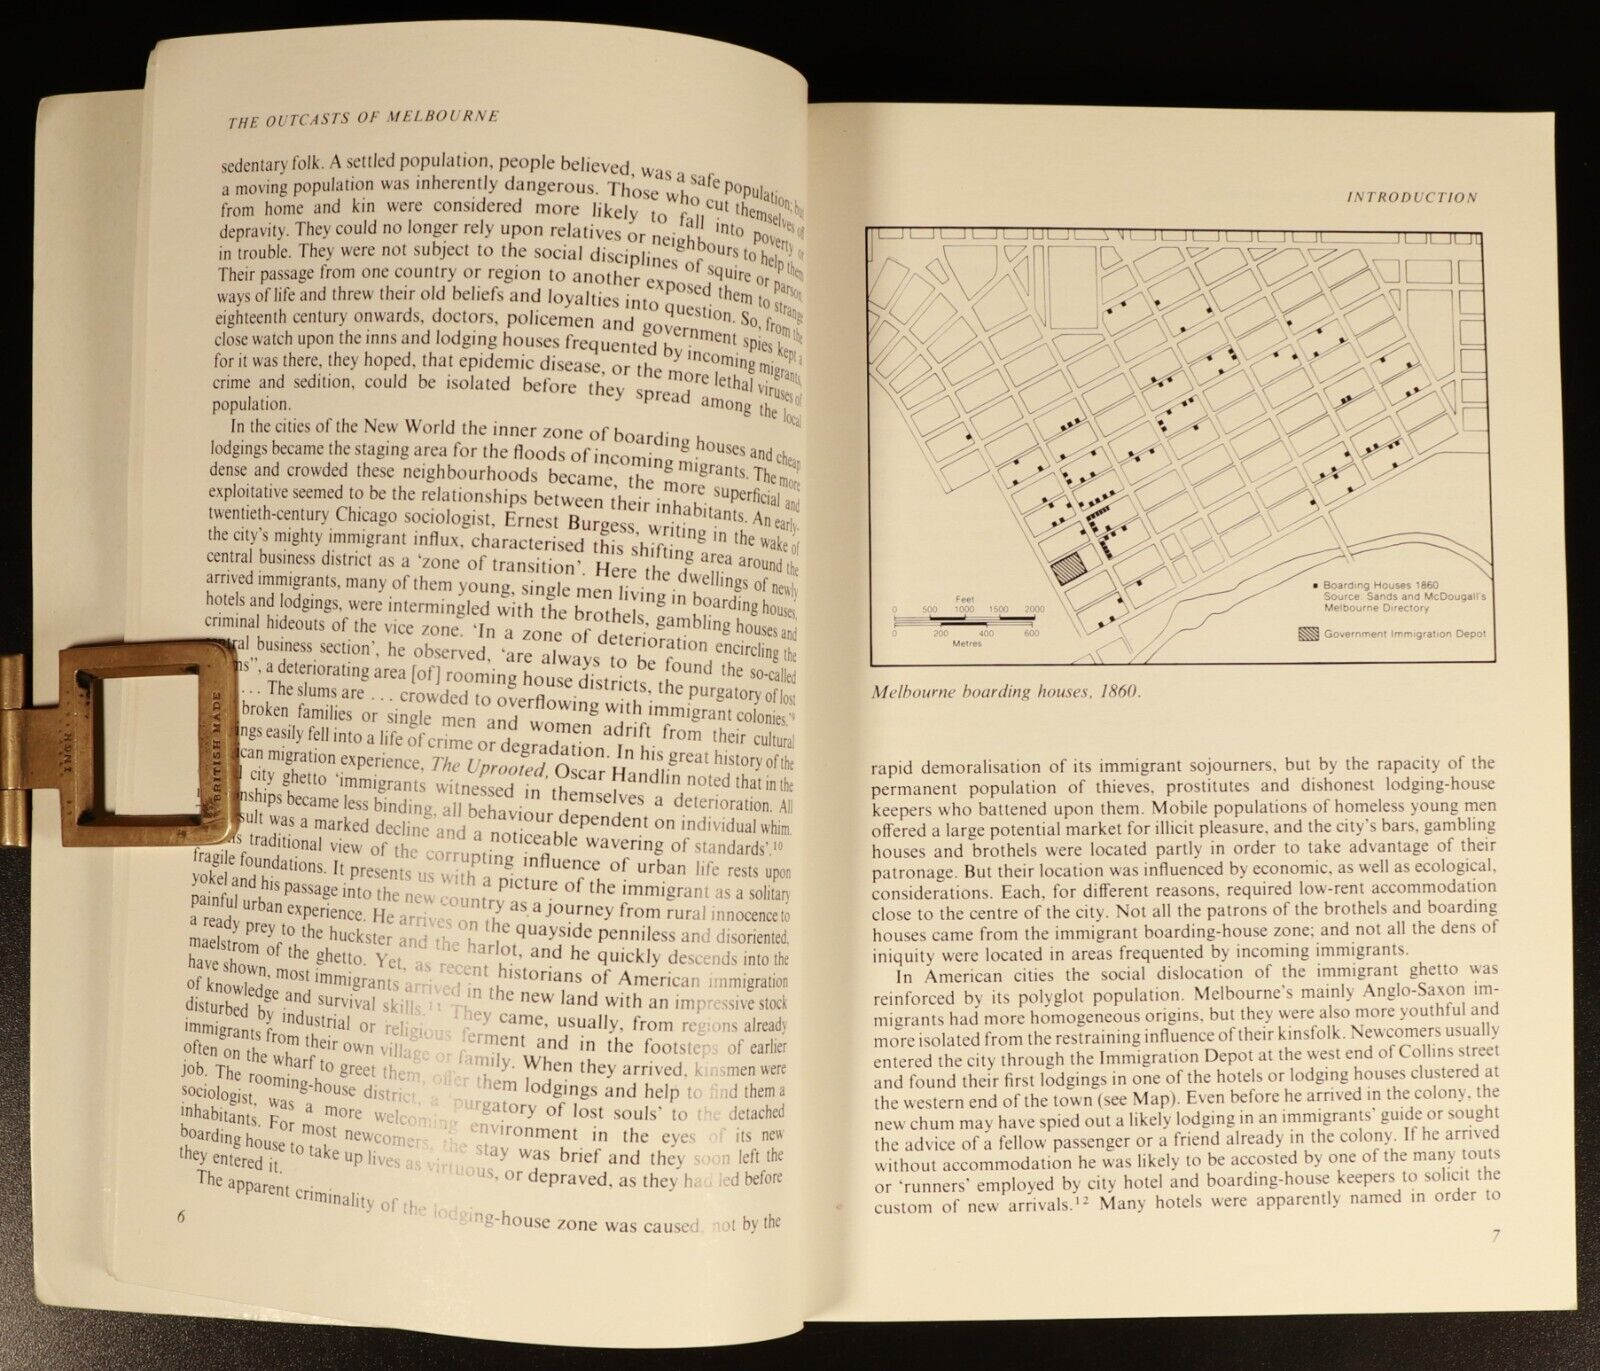 THE OUTCASTS OF MELBOURNE
sedentary folk. A settled population, people believed, was a safe population; but
a moving population was inherently dangerous. Those who cut themselves off
from home and kin were considered more likely to fall into poverty or
depravity. They could no longer rely upon relatives or neighbours to help them
in trouble. They were not subject to the social disciplines of squire or parson.
Their passage from one country or region to another exposed them to strange
ways of life and threw their old beliefs and loyalties into question. So, from the
eighteenth century onwards, doctors, policemen and government spies kept a
close watch upon the inns and lodging houses frequented by incoming migrants,
for it was there, they hoped, that epidemic disease, or the more lethal viruses of
crime and sedition, could be isolated before they spread among the local
population.
In the cities of the New World the inner zone of boarding houses and cheap
lodgings became the staging area for the floods of incoming migrants. The more
dense and crowded these neighbourhoods became, the more superficial and
exploitative seemed to be the relationships between their inhabitants. An early-
twentieth-century Chicago sociologist, Ernest Burgess, writing in the wake of
the city's mighty immigrant influx, characterised this shifting area around the
central business district as a 'zone of transition'. Here the dwellings of newly
arrived immigrants, many of them young, single men living in boarding houses,
hotels and lodgings, were intermingled with the brothels, gambling houses and
criminal hideouts of the vice zone. 'In a zone of deterioration encircling the
ntral business section', he observed, 'are always to be found the so-called
ms", a deteriorating area [of] rooming house districts, the purgatory of lost
... The slums are ... crowded to overflowing with immigrant colonies.'⁹
broken families or single men and women adrift from their cultural
ings easily fell into a life of crime or degradation. In his great history of the
can migration experience, The Uprooted, Oscar Handlin noted that in the
city ghetto 'immigrants witnessed in themselves a deterioration. All
nships became less binding, all behaviour dependent on individual whim.
sult was a marked decline and a noticeable wavering of standards'.¹⁰
is traditional view of the corrupting influence of urban life rests upon
fragile foundations. It presents us with a picture of the immigrant as a solitary
yokel and his passage into the new country as a journey from rural innocence to
painful urban experience. He arrives on the quayside penniless and disoriented,
a ready prey to the huckster and the harlot, and he quickly descends into the
maelstrom of the ghetto. Yet, as recent historians of American immigration
have shown, most immigrants arrived in the new land with an impressive stock
of knowledge and survival skills.¹¹ They came, usually, from regions already
disturbed by industrial or religious ferment and in the footsteps of earlier
immigrants from their own village or family. When they arrived, kinsmen were
often on the wharf to greet them, offer them lodgings and help to find them a
job. The rooming-house district, a 'purgatory of lost souls' to the detached
sociologist, was a more welcoming environment in the eyes of its new
inhabitants. For most newcomers, the stay was brief and they soon left the
boarding house to take up lives as virtuous, or depraved, as they had led before
they entered it.
The apparent criminality of the lodging-house zone was caused, not by the
6
INCH
BRITISH MADE
INTRODUCTION
Feet
0 500 1000 1500 2000
0 200 400 600
Metres
Boarding Houses 1860
Source: Sands and McDougall's
Melbourne Directory
Government Immigration Depot
Melbourne boarding houses, 1860.
rapid demoralisation of its immigrant sojourners, but by the rapacity of the
permanent population of thieves, prostitutes and dishonest lodging-house
keepers who battened upon them. Mobile populations of homeless young men
offered a large potential market for illicit pleasure, and the city's bars, gambling
houses and brothels were located partly in order to take advantage of their
patronage. But their location was influenced by economic, as well as ecological,
considerations. Each, for different reasons, required low-rent accommodation
close to the centre of the city. Not all the patrons of the brothels and boarding
houses came from the immigrant boarding-house zone; and not all the dens of
iniquity were located in areas frequented by incoming immigrants.
In American cities the social dislocation of the immigrant ghetto was
reinforced by its polyglot population. Melbourne's mainly Anglo-Saxon im-
migrants had more homogeneous origins, but they were also more youthful and
more isolated from the restraining influence of their kinsfolk. Newcomers usually
entered the city through the Immigration Depot at the west end of Collins street
and found their first lodgings in one of the hotels or lodging houses clustered at
the western end of the town (see Map). Even before he arrived in the colony, the
new chum may have spied out a likely lodging in an immigrants' guide or sought
the advice of a fellow passenger or a friend already in the colony. If he arrived
without accommodation he was likely to be accosted by one of the many touts
or 'runners' employed by city hotel and boarding-house keepers to solicit the
custom of new arrivals.¹² Many hotels were apparently named in order to
7